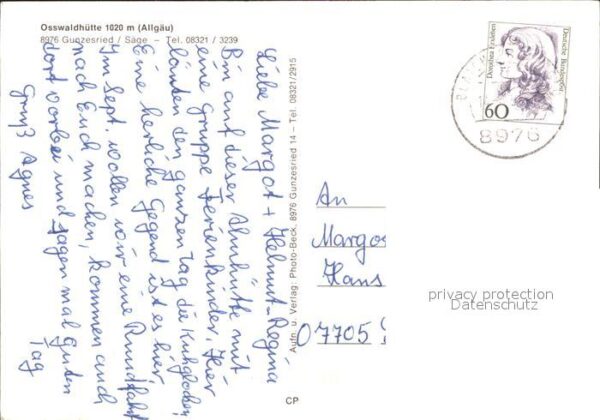 Osswaldhütte 1020 m (Allgäu)
8976 Gunzesried / Säge – Tel. 08321 / 3239
Liebe Margot + Helmut-Regina
Bin auf dieser Almhütte mit
eine Gruppe Ferienkinder. Hier
läuten den ganzen Tag die Kuhglocken
Eine herliche Gegend ist es hier
Im Sept. wollen wir eine Rundfahrt
nach Euch machen, kommen auch
dort vorbei und sagen mal guten
Tag
Gruß Agnes
Aufn. u. Verlag: Photo-Beck, 8976 Gunzesried 14 – Tel. 08321/2915
CP
Dorothea Erxleben
Deutsche Bundespost
60
8976
An
Margo
Hans
07705
privacy protection
Datenschutz